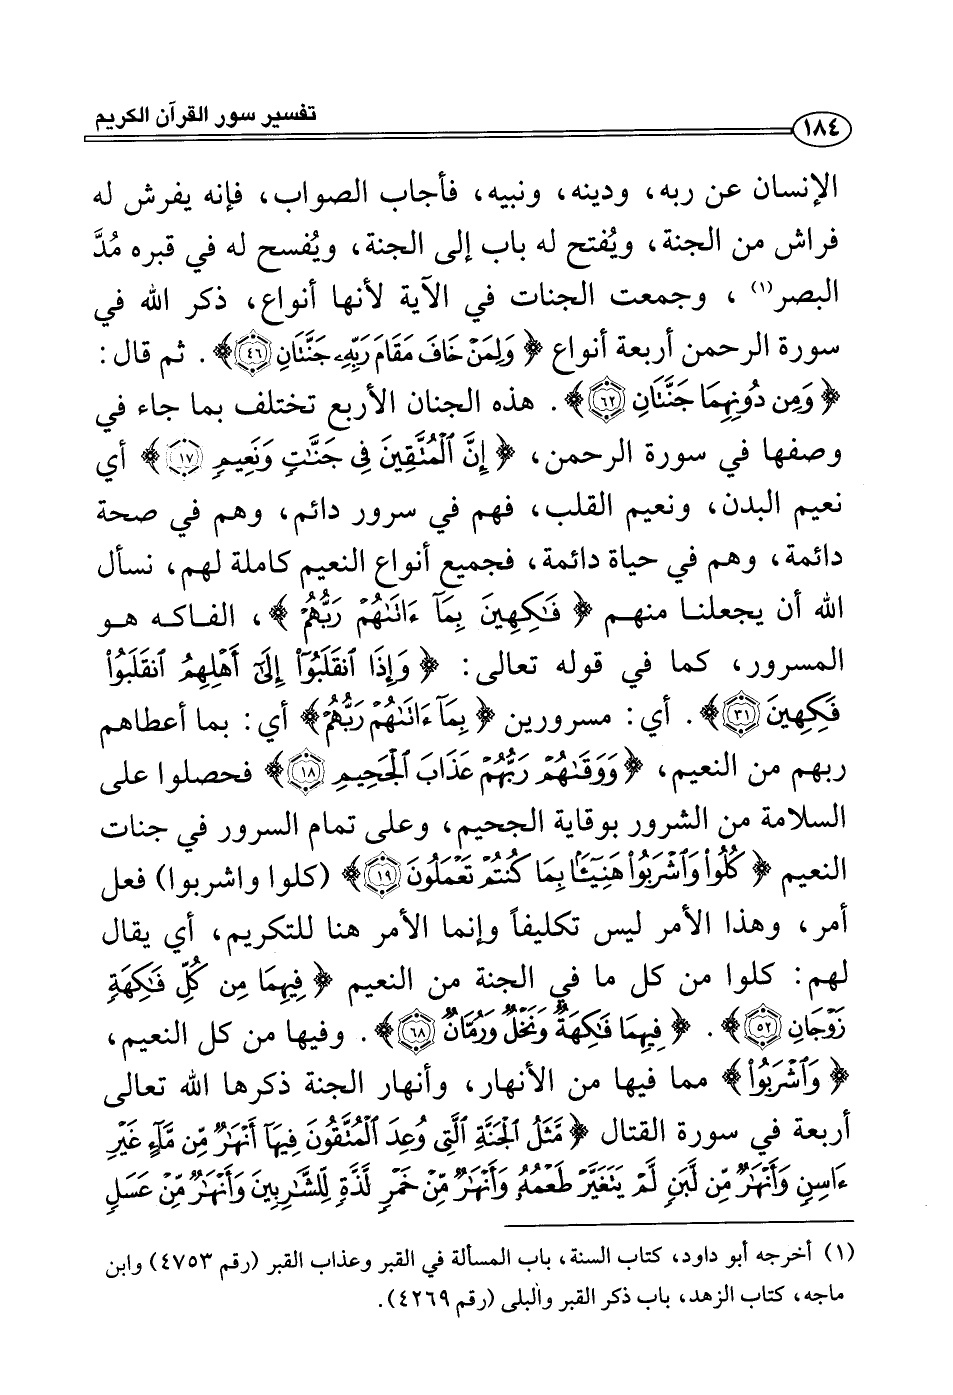 ١٨٤ تفسير سور القرآن الكريم
الإنسان عن ربه، ودينه، ونبيه، فأجاب الصواب، فإنه يفرش له
فراش من الجنة، ويُفتح له باب إلى الجنة، ويُفسح له في قبره مُدَّ
البصر(١)، وجمعت الجنات في الآية لأنها أنواع، ذكر الله في
سورة الرحمن أربعة أنواع ﴿وَلِمَنْ خَافَ مَقَامَ رَبِّهِۦ جَنَّتَانِ ٤٦﴾. ثم قال:
﴿وَمِن دُونِهِمَا جَنَّتَانِ ٦٢﴾. هذه الجنان الأربع تختلف بما جاء في
وصفها في سورة الرحمن، ﴿إِنَّ ٱلْمُتَّقِينَ فِى جَنَّٰتٍ وَنَعِيمٍ ١٧﴾ أي
نعيم البدن، ونعيم القلب، فهم في سرور دائم، وهم في صحة
دائمة، وهم في حياة دائمة، فجميع أنواع النعيم كاملة لهم، نسأل
الله أن يجعلنا منهم ﴿فَٰكِهِينَ بِمَآ ءَاتَىٰهُمْ رَبُّهُمْ﴾، الفاكه هو
المسرور، كما في قوله تعالى: ﴿وَإِذَا ٱنقَلَبُوٓا۟ إِلَىٰٓ أَهْلِهِمُ ٱنقَلَبُوا۟
فَكِهِينَ ٣١﴾. أي: مسرورين ﴿بِمَآ ءَاتَىٰهُمْ رَبُّهُمْ﴾ أي: بما أعطاهم
ربهم من النعيم، ﴿وَوَقَىٰهُمْ رَبُّهُمْ عَذَابَ ٱلْجَحِيمِ ١٨﴾ فحصلوا على
السلامة من الشرور بوقاية الجحيم، وعلى تمام السرور في جنات
النعيم ﴿كُلُوا۟ وَٱشْرَبُوا۟ هَنِيٓـًٔۢا بِمَا كُنتُمْ تَعْمَلُونَ ١٩﴾ (كلوا واشربوا) فعل
أمر، وهذا الأمر ليس تكليفاً وإنما الأمر هنا للتكريم، أي يقال
لهم: كلوا من كل ما في الجنة من النعيم ﴿فِيهِمَا مِن كُلِّ فَٰكِهَةٍ
زَوْجَانِ ٥٢﴾. ﴿فِيهِمَا فَٰكِهَةٌ وَنَخْلٌ وَرُمَّانٌ ٦٨﴾. وفيها من كل النعيم،
﴿وَٱشْرَبُوا۟﴾ مما فيها من الأنهار، وأنهار الجنة ذكرها الله تعالى
أربعة في سورة القتال ﴿مَّثَلُ ٱلْجَنَّةِ ٱلَّتِى وُعِدَ ٱلْمُتَّقُونَ فِيهَآ أَنْهَٰرٌ مِّن مَّآءٍ غَيْرِ
ءَاسِنٍ وَأَنْهَٰرٌ مِّن لَّبَنٍ لَّمْ يَتَغَيَّرْ طَعْمُهُۥ وَأَنْهَٰرٌ مِّنْ خَمْرٍ لَّذَّةٍ لِّلشَّٰرِبِينَ وَأَنْهَٰرٌ مِّنْ عَسَلٍ
(١) أخرجه أبو داود، كتاب السنة، باب المسألة في القبر وعذاب القبر (رقم ٤٧٥٣) وابن
ماجه، كتاب الزهد، باب ذكر القبر والبلى (رقم ٤٢٦٩).